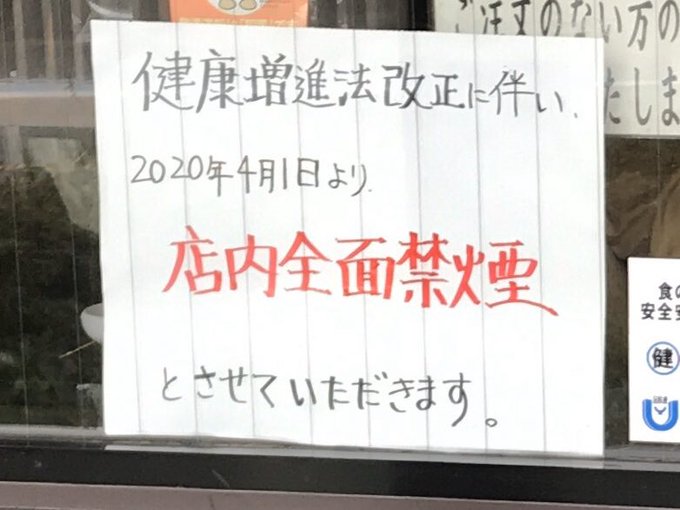 健康増進法改正に伴い、
2020年4月1日より
店内全面禁煙
とさせていただきます。
ご注文のない方の
たしま
食の
安全安
健